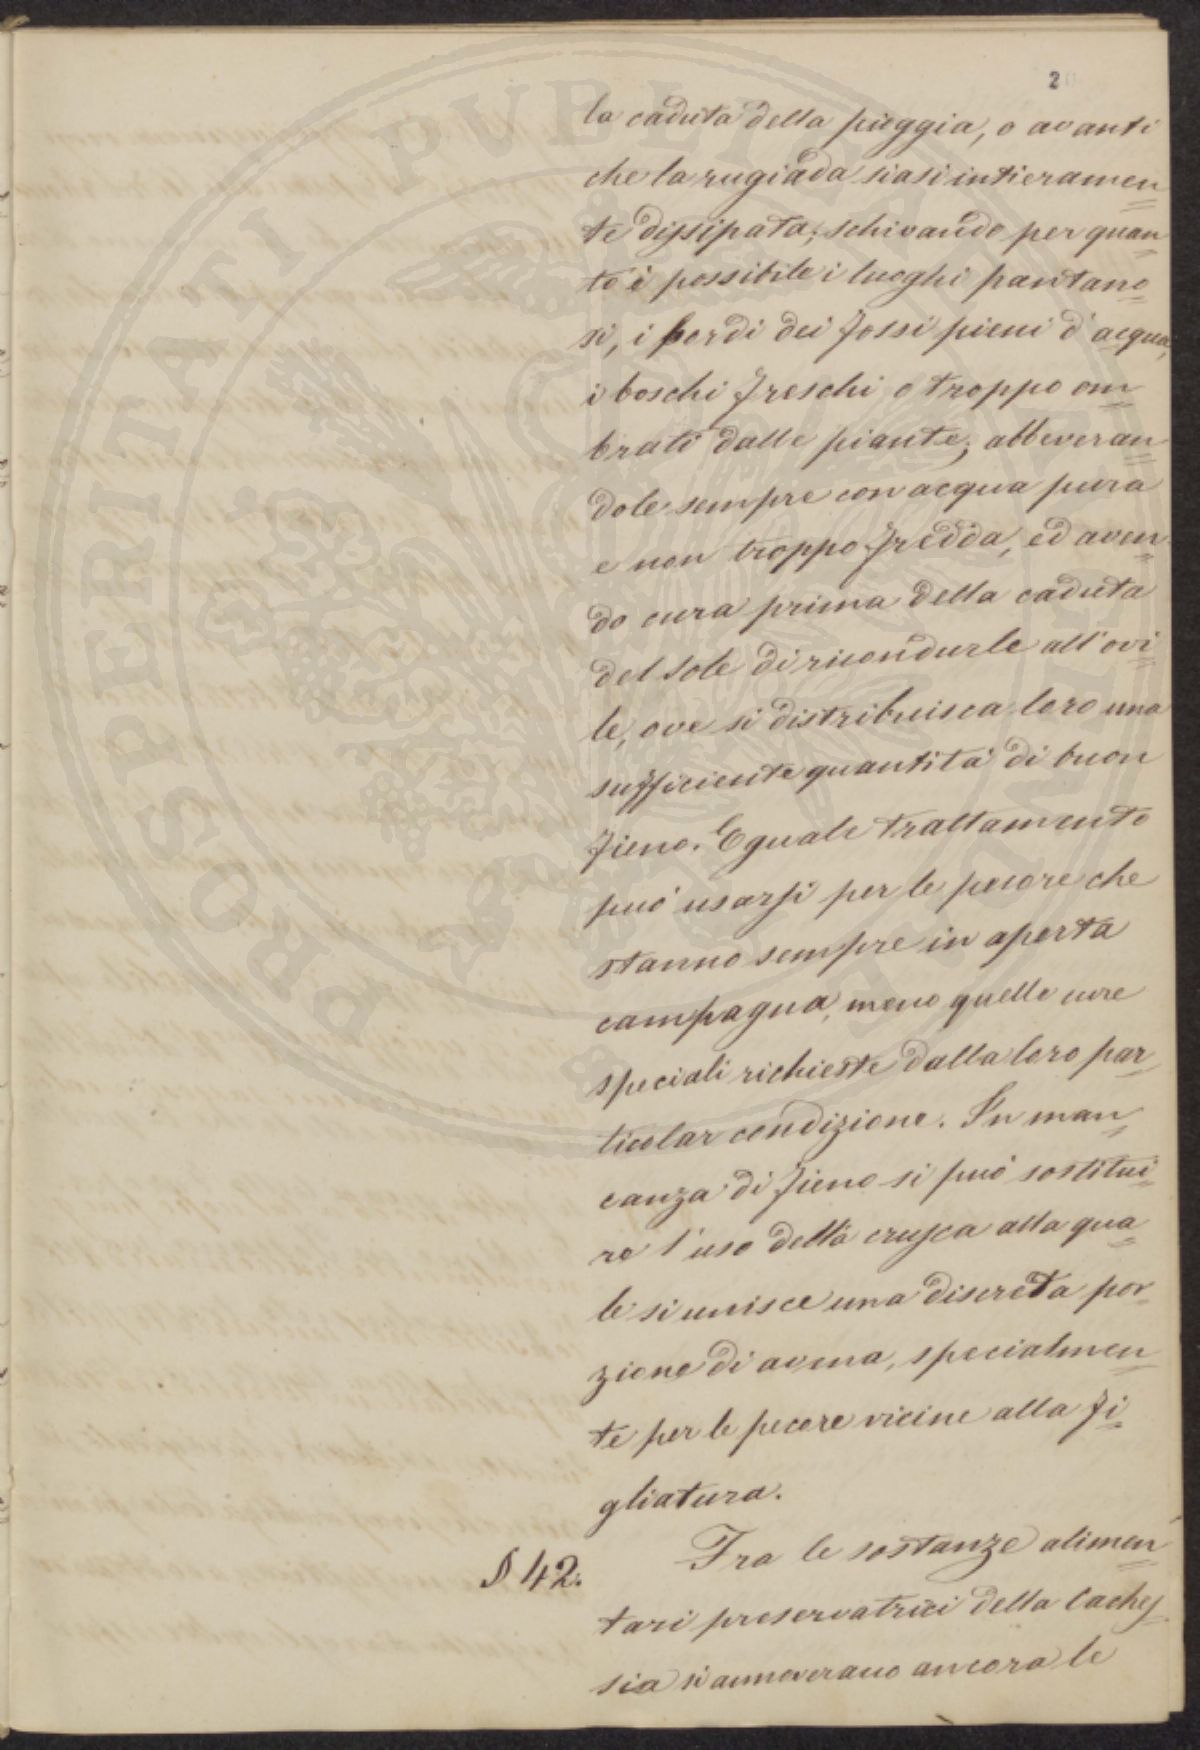 20
la caduta della pioggia, o avanti
che la rugiada siasi intieramen
te dissipata; schivando per quan
to è possibile i luoghi pantano
si, i bordi dei fossi pieni d'acqua,
i boschi freschi o troppo om
brati dalle piante; abbeveran
dole sempre con acqua pura
e non troppo fredda, ed aven
do cura prima della caduta
del sole di ricondurle all'ovi
le, ove si distribuisca loro una
sufficiente quantità di buon
fieno. Eguale trattamento
può usarsi per le pecore che
stanno sempre in aperta
campagna, meno quelle cure
speciali richieste dalla loro par
ticolar condizione. In man
canza di fieno si può sostitui
re l'uso della crusca alla qua
le si unisce una discreta por
zione di avena, specialmen
te per le pecore vicine alla fi
gliatura.
§ 42. Fra le sostanze alimen
tari preservatrici della caches
sia si annoverano ancora le
PROSPERITATI PUBLICAE